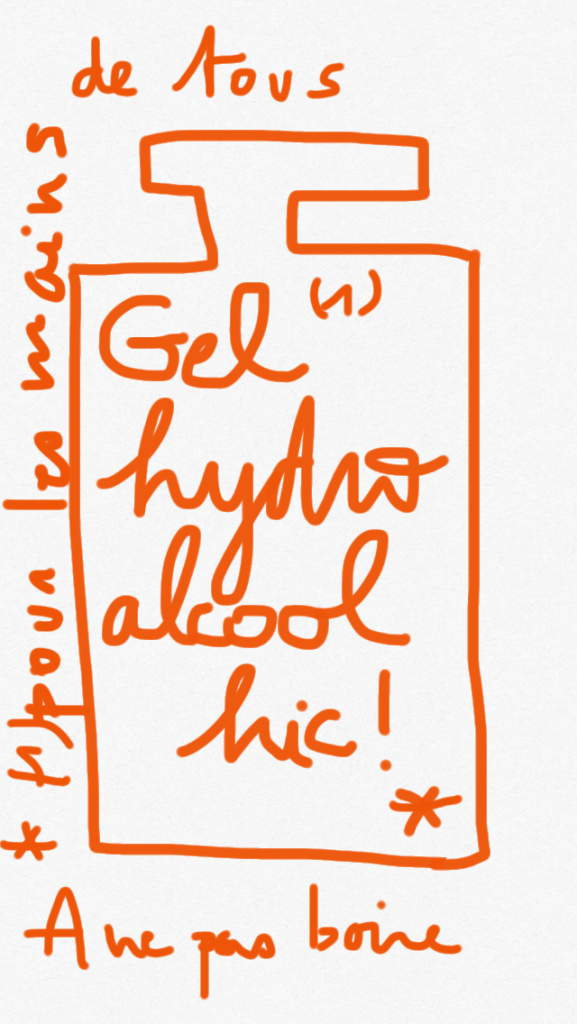 de tous
Gel (1)
hydro
alcool
hic!
*
* (1) pour les mains
A ne pas boire